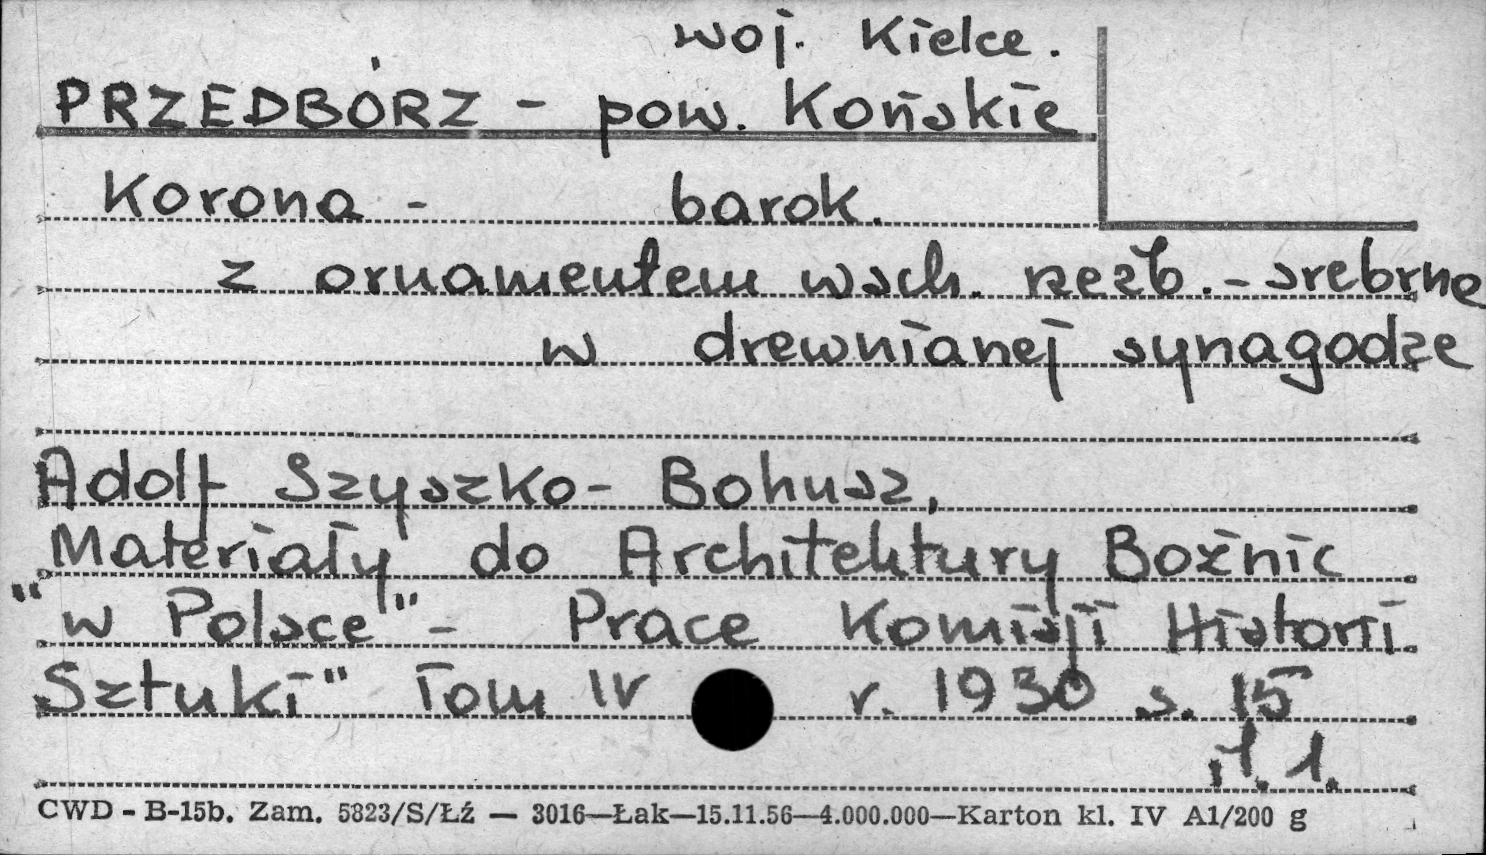 woj. Kielce.
PRZEDBÓRZ - pow. Końskie
Korona - barok.
z ornamentem wsch. rzeźb. - srebrne
w drewnianej synagodze
Adolf Szyszko-Bohusz,
Materiały do Architektury Bożnic
"w Polsce" - Prace Komisji Historii
Sztuki" Tom IV r. 1930 s. 15
il. 1.
CWD - B-15b. Zam. 5823/S/Łź — 3016—Łak—15.11.56—4.000.000—Karton kl. IV A1/200 g